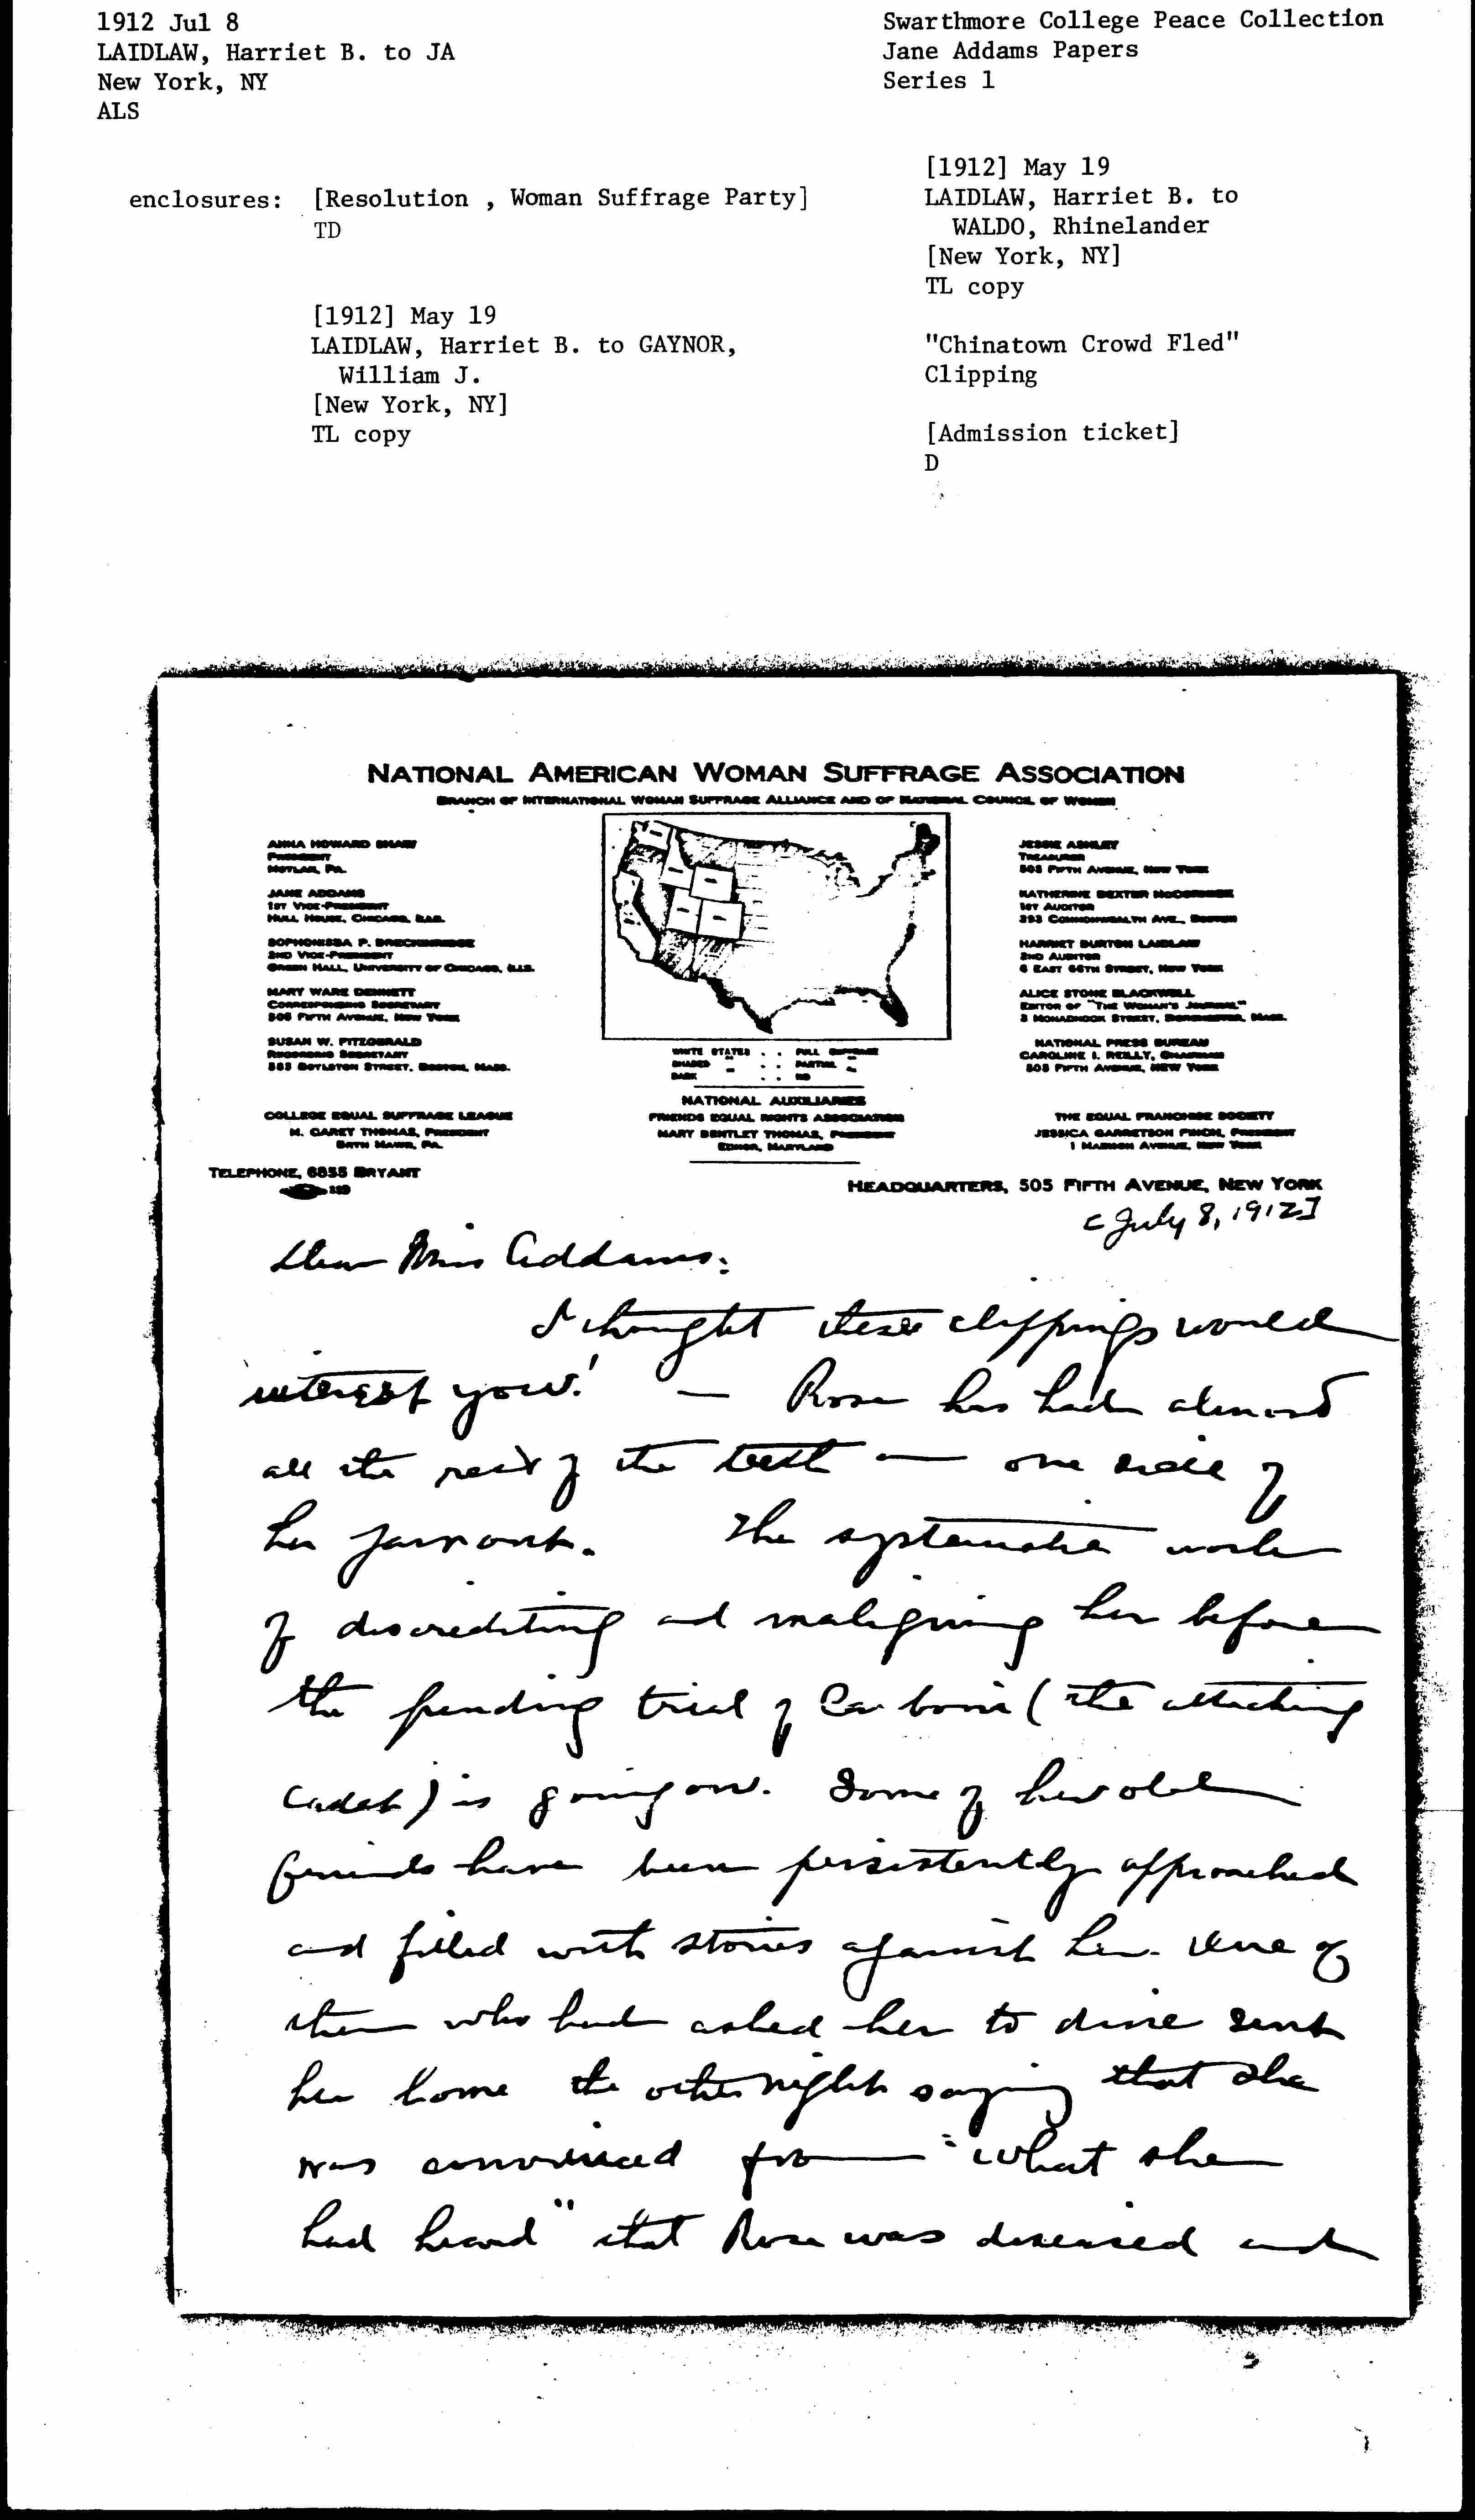 1912 Jul 8
LAIDLAW, Harriet B. to JA
New York, NY
ALS
Swarthmore College Peace Collection
Jane Addams Papers
Series 1
enclosures: [Resolution , Woman Suffrage Party]
TD
[1912] May 19
LAIDLAW, Harriet B. to GAYNOR,
William J.
[New York, NY]
TL copy
[1912] May 19
LAIDLAW, Harriet B. to
WALDO, Rhinelander
[New York, NY]
TL copy
"Chinatown Crowd Fled"
Clipping
[Admission ticket]
D
NATIONAL AMERICAN WOMAN SUFFRAGE ASSOCIATION
BRANCH OF INTERNATIONAL WOMAN SUFFRAGE ALLIANCE AND OF NATIONAL COUNCIL OF WOMEN
ANNA HOWARD SHAW
PRESIDENT
MOYLAN, PA.
JANE ADDAMS
1ST VICE-PRESIDENT
HULL HOUSE, CHICAGO, ILLS.
SOPHONISBA P. BRECKINRIDGE
2ND VICE-PRESIDENT
GREEN HALL, UNIVERSITY OF CHICAGO, ILLS.
MARY WARE DENNETT
CORRESPONDING SECRETARY
505 FIFTH AVENUE, NEW YORK
SUSAN W. FITZGERALD
RECORDING SECRETARY
585 BOYLSTON STREET, BOSTON, MASS.
JESSIE ASHLEY
TREASURER
505 FIFTH AVENUE, NEW YORK
KATHERINE DEXTER McCORMICK
1ST AUDITOR
393 COMMONWEALTH AVE., BOSTON
HARRIET BURTON LAIDLAW
2ND AUDITOR
6 EAST 66TH STREET, NEW YORK
ALICE STONE BLACKWELL
EDITOR OF "THE WOMAN'S JOURNAL"
3 MONADNOCK STREET, DORCHESTER, MASS.
NATIONAL PRESS BUREAU
CAROLINE I. REILLY, CHAIRMAN
505 FIFTH AVENUE, NEW YORK
WHITE STATES . . FULL SUFFRAGE
SHADED " . . PARTIAL "
DARK . . NO
NATIONAL AUXILIARIES
COLLEGE EQUAL SUFFRAGE LEAGUE
M. CAREY THOMAS, PRESIDENT
BRYN MAWR, PA.
FRIENDS EQUAL RIGHTS ASSOCIATION
MARY BENTLEY THOMAS, PRESIDENT
EDNOR, MARYLAND
THE EQUAL FRANCHISE SOCIETY
JESSICA GARRETSON FINCH, PRESIDENT
1 MADISON AVENUE, NEW YORK
TELEPHONE, 6855 BRYANT
HEADQUARTERS, 505 FIFTH AVENUE, NEW YORK
[July 8, 1912]
Dear Miss Addams:
I thought these clippings would
interest you! — Rose has had almost
all the rest of the teeth on one side of
her jaw out. The systematic work
of discrediting and maligning her before
the pending trial of Carboni (the attacking
Cadet) is going on. Some of her old
friends have been persistently approached
and filled with stories against her. One of
them who had asked her to dine sent
her home the other night saying that she
was convinced from "what she
had heard" that Rose was diseased and